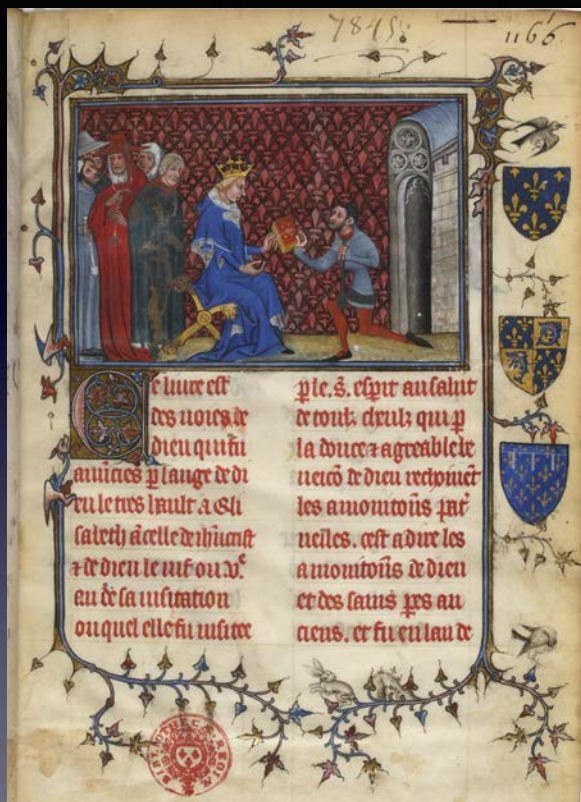 7845
1166
Ce liure est
des uoies de
dieu qui fu
anūcies p lange de di
eu le tres hault a Eli
sabeth ācelle de ihūcrist
⁊ de dieu le uif ou v.ᵉ
an de sa uisitation
ou quel elle fu uisitee
p le. s̄. esprit au salut
de toulz cheulz qui p
la douce ⁊ agreable be
neicō de dieu rechoiuēt
les amonitōns pat̄
nelles. cest a dire les
amonitōns de dieu
et des sains pēs an
ciens. et fu en lan de